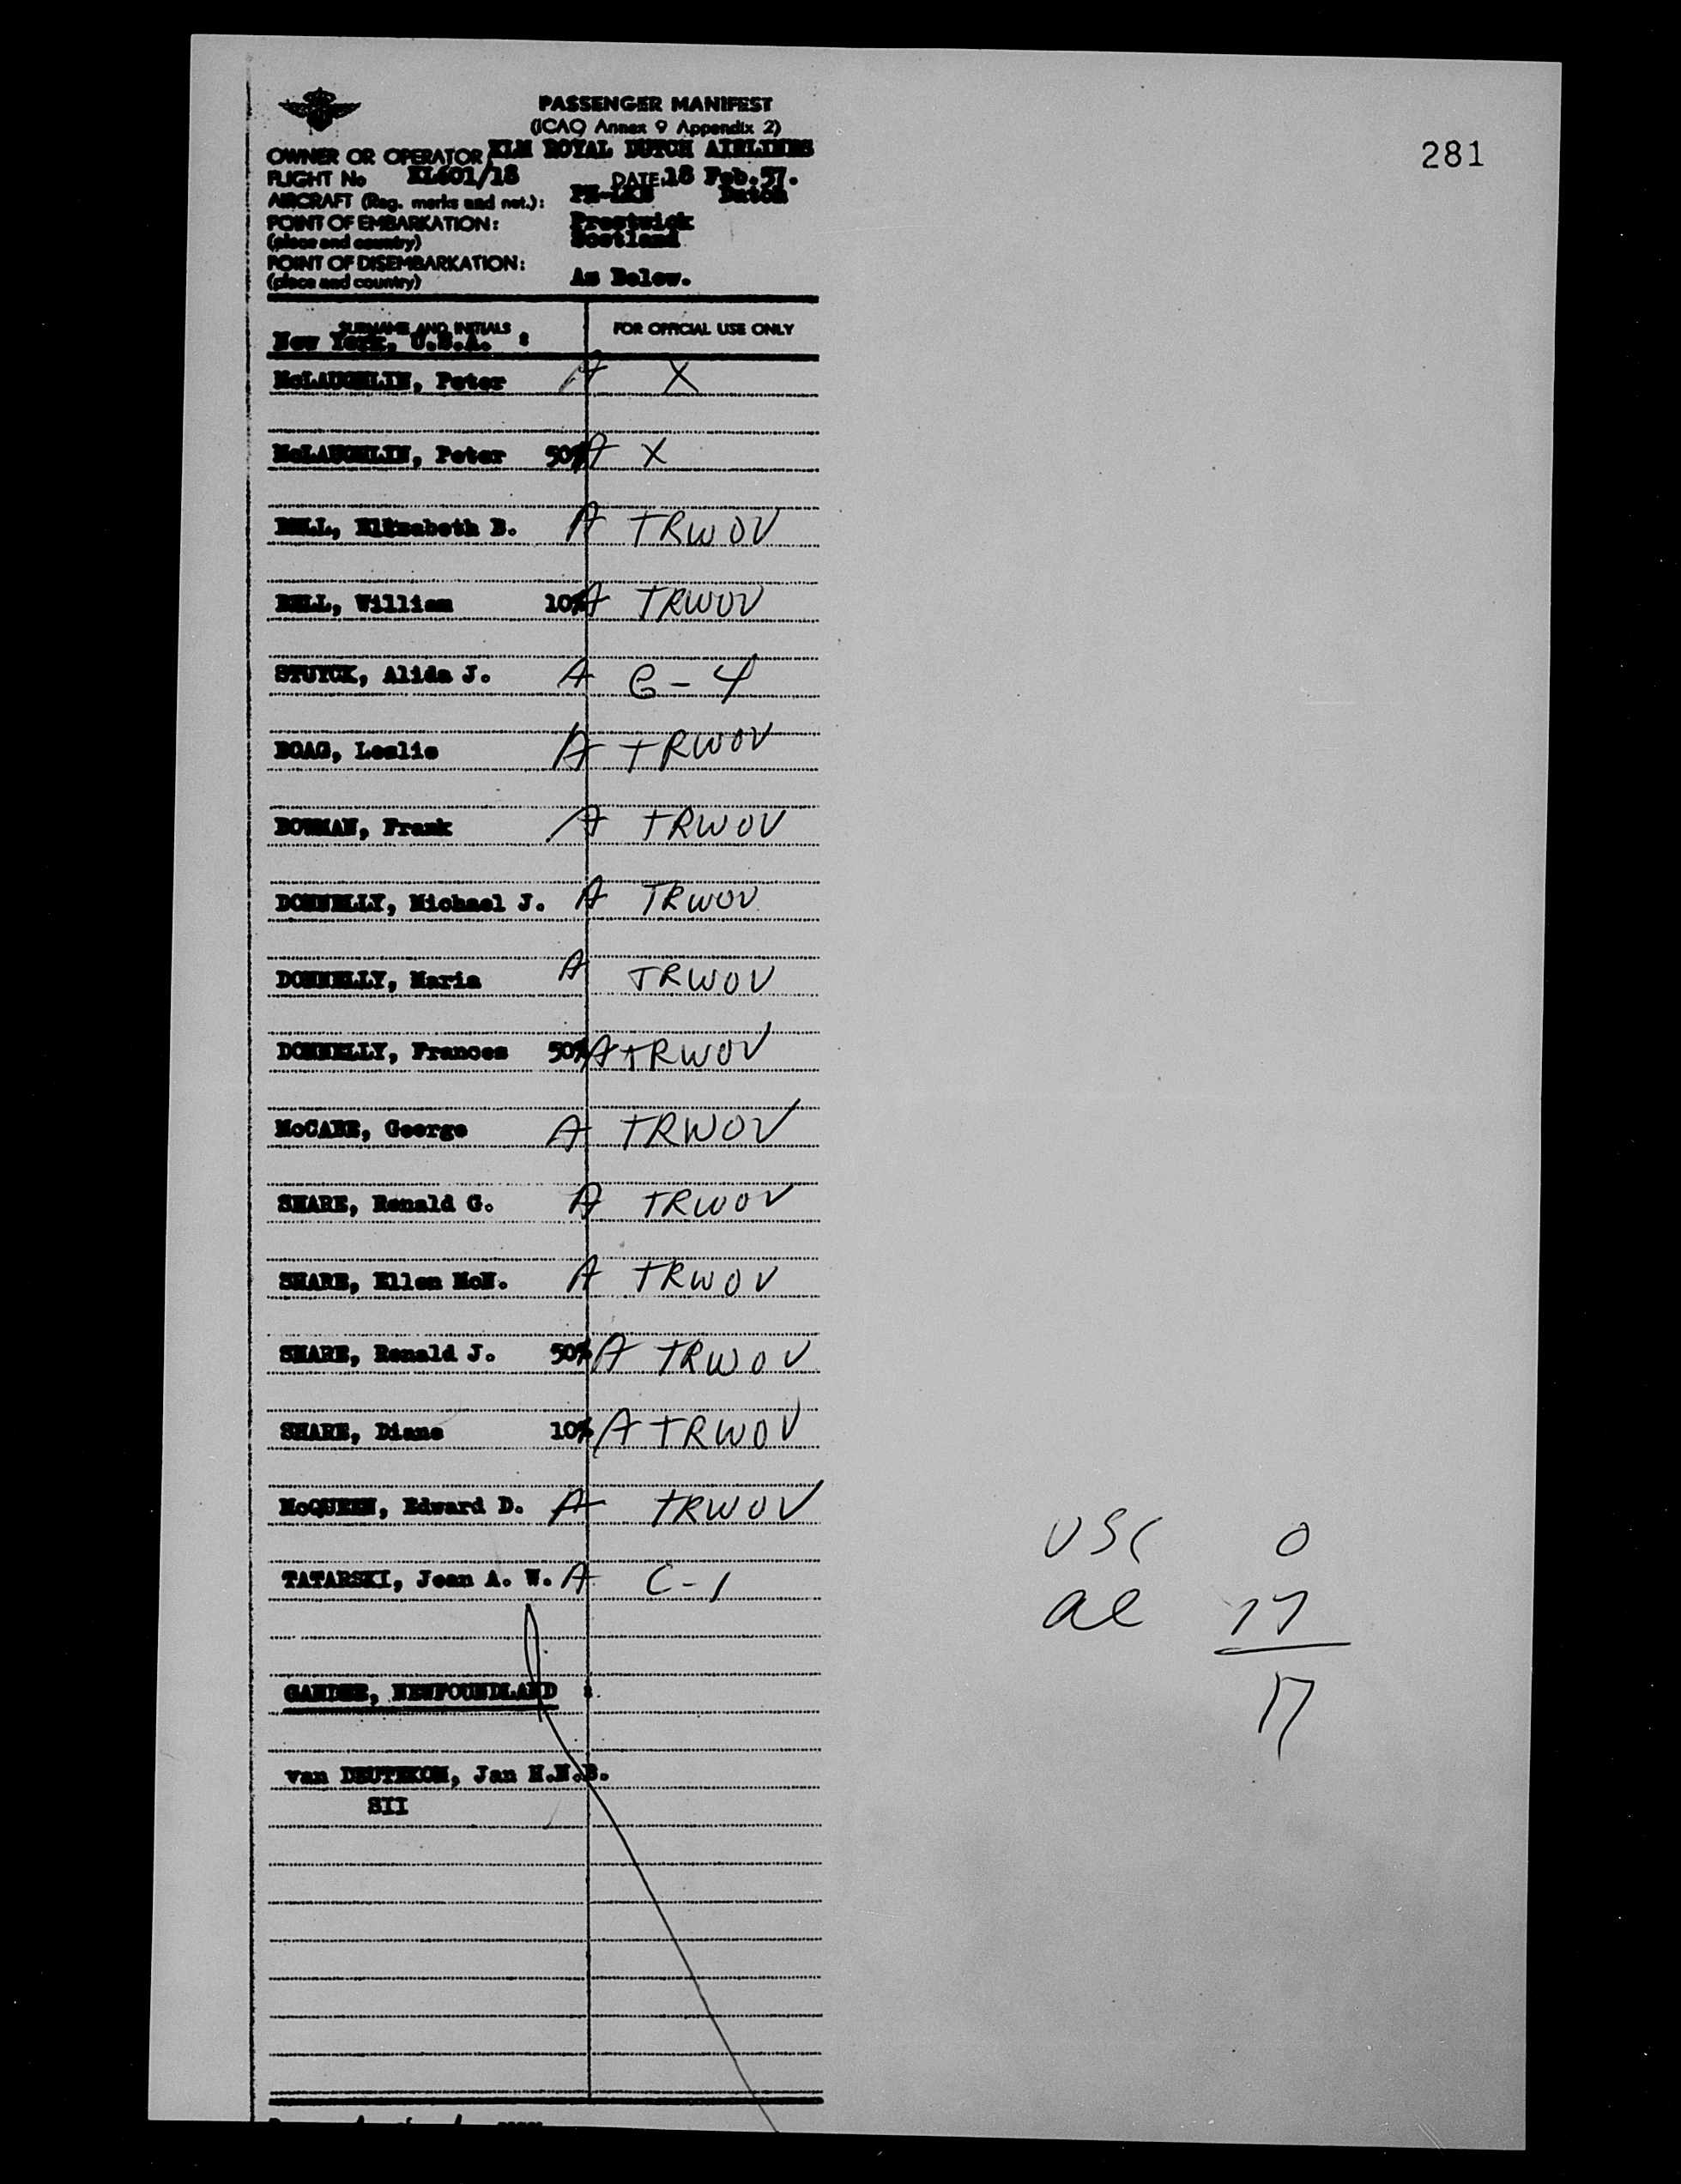 PASSENGER MANIFEST
(ICAO Annex 9 Appendix 2)
281
OWNER OR OPERATOR KLM ROYAL DUTCH AIRLINES
FLIGHT No KL601/18 DATE: 18 Feb. 57.
AIRCRAFT (Reg. marks and nat.): Dutch
POINT OF EMBARKATION: Prestwick
(place and country) Scotland
POINT OF DISEMBARKATION:
(place and country) As Below.
SURNAME AND INITIALS FOR OFFICIAL USE ONLY
New York, U.S.A. :
McLAUGHLIN, Peter A X
McLAUGHLIN, Peter 50% A X
BELL, Elizabeth B. A TRWOV
BELL, William 10% A TRWOV
STUYCK, Alida J. A G-4
BOAG, Leslie A TRWOV
BOWMAN, Frank A TRWOV
DONNELLY, Michael J. A TRWOV
DONNELLY, Maria A TRWOV
DONNELLY, Frances 50% A TRWOV
McCABE, George A TRWOV
SHARE, Ronald G. A TRWOV
SHARE, Ellen McN. A TRWOV
SHARE, Ronald J. 50% A TRWOV
SHARE, Diane 10% A TRWOV
McQUEEN, Edward D. A TRWOV
USC 0
TATARSKI, Jean A. W. A C-1
al 17
17
GANDER, NEWFOUNDLAND :
van DEUTEKOM, Jan H.N.B.
SII